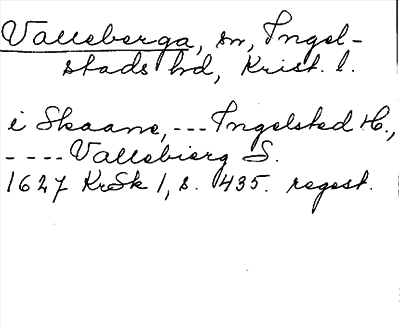 Valleberga, sn, Ingel-
stads hd, Krist. l.
i Skaane, --- Ingelsted H.,
---- Vallebierg S.
1627 KrSk 1, s. 435. regest.